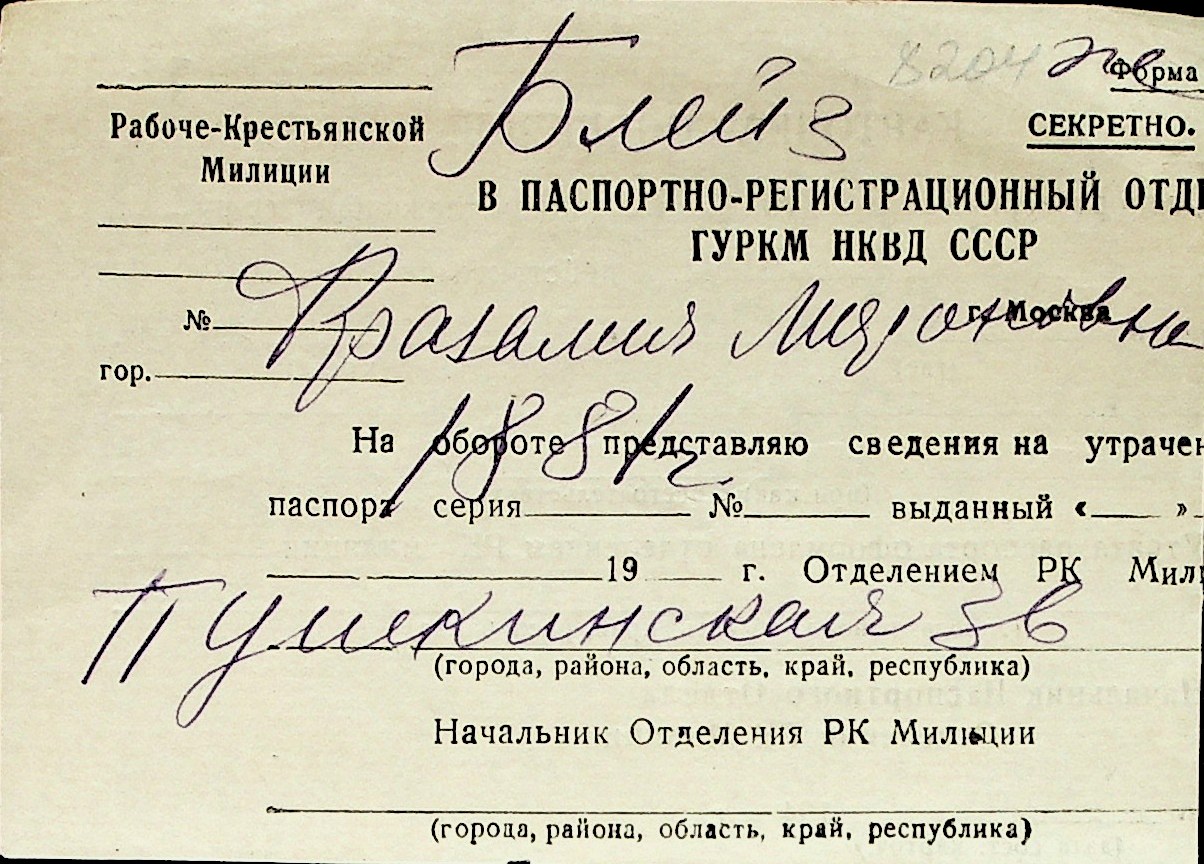 8204 же
Форма
Блейз
СЕКРЕТНО.
Рабоче-Крестьянской
Милиции
В ПАСПОРТНО-РЕГИСТРАЦИОННЫЙ ОТД
ГУРКМ НКВД СССР
№
г. Москва
Мироновна
гор.
1881 г.
На обороте представляю сведения на утрачен
паспорт серия № выданный « »
19 г. Отделением РК Мил
Пушкинская 3в
(города, района, область, край, республика)
Начальник Отделения РК Милиции
(города, района, область, край, республика)